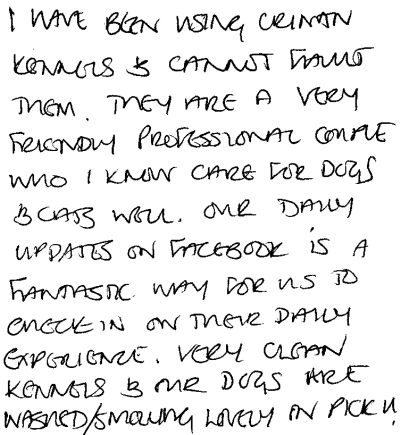 I HAVE BEEN USING CRINAN
KENNELS & CANNOT FAULT
THEM. THEY ARE A VERY
FRIENDLY PROFESSIONAL COUPLE
WHO I KNOW CARE FOR DOGS
& CATS WELL. OUR DAILY
UPDATES ON FACEBOOK IS A
FANTASTIC WAY FOR US TO
CHECK IN ON THEIR DAILY
EXPERIENCE. VERY CLEAN
KENNELS & OUR DOGS ARE
WASHED/SMELLING LOVELY ON PICK U!